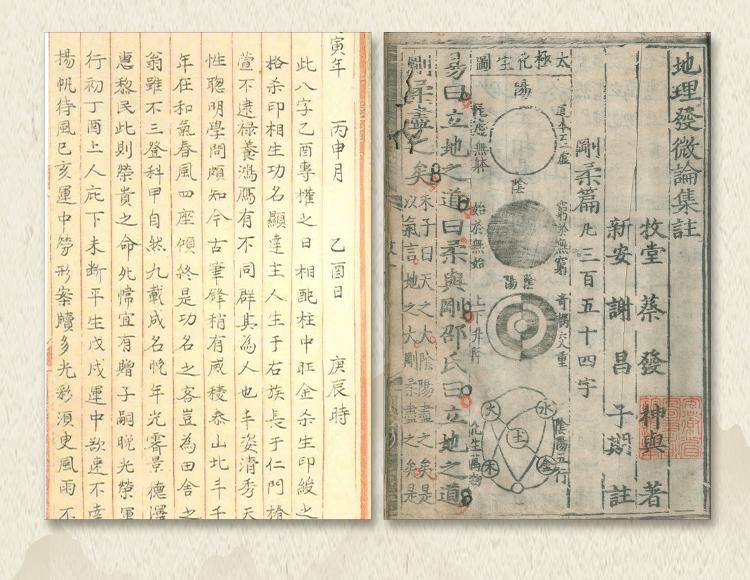 地理發微論集註
牧堂蔡發神與著
新安謝昌子期註
剛柔篇凡三百五十四字
太極化生圖
陽
陰
始於無始
窮於無窮
陰陽
上下升降
陰陽五行
化生萬物
火
水
土
木
金
易曰立地之道曰柔與剛邵氏曰立地之道
剛柔盡之矣
朱子曰天之大陰陽盡之矣是
以氣言地之大剛柔盡之矣是
寅年 丙申月 乙酉日 庚辰時
此八字乙酉專權之日相配柱中旺金杀生印綬之
格杀印相生功名顯達主人生于右族長于仁門椿
萱不逮祿養鴻鴈有不同群其為人也丰姿清秀天
性聰明學問頗知今古筆鋒稍有威稜泰山北斗千
年在和氣春風四座傾終是功名之客豈為田舍之
翁雖不三登科甲自然九載成名晚年光霽景德澤
惠黎民此則榮貴之命 宜有贈子嗣晚光榮運
行初丁酉上人庇下未斷平生戊戌運中欲速不達
揚帆待風己亥運中勞形案牘多光彩須更風雨不